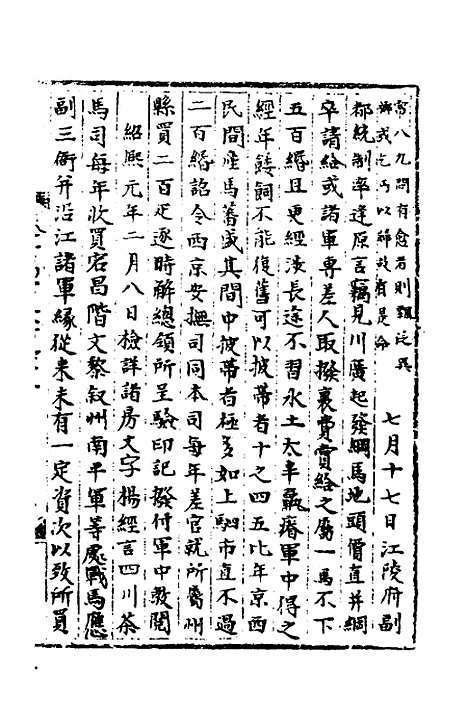 常八九間有愈者則
師或乞丐以
七月十七日江陵府副
都統制率逢原言竊見川廣起發綱馬地頭價直并綱
卒請給或諸軍專差人取撥裹費賞給之屬一馬不下
五百緡且更經涉長途不習水土太半羸瘠軍中得之
經年餧飼不能復舊可以披帶者十之四五比年京西
民間產馬蕃盛其間中披帶者極多如上駟市直不過
二百緡詔令西京安撫司同本司每年差官就所屬州
縣買二百疋逐時解總領所呈驗印記撥付軍中教閱
紹熙元年二月八日檢詳諸房文字楊經言四川茶
馬司每年收買宕昌階文黎叙州南平軍等處戰馬應
副三衙并沿江諸軍緣從来未有一定資次以致所買